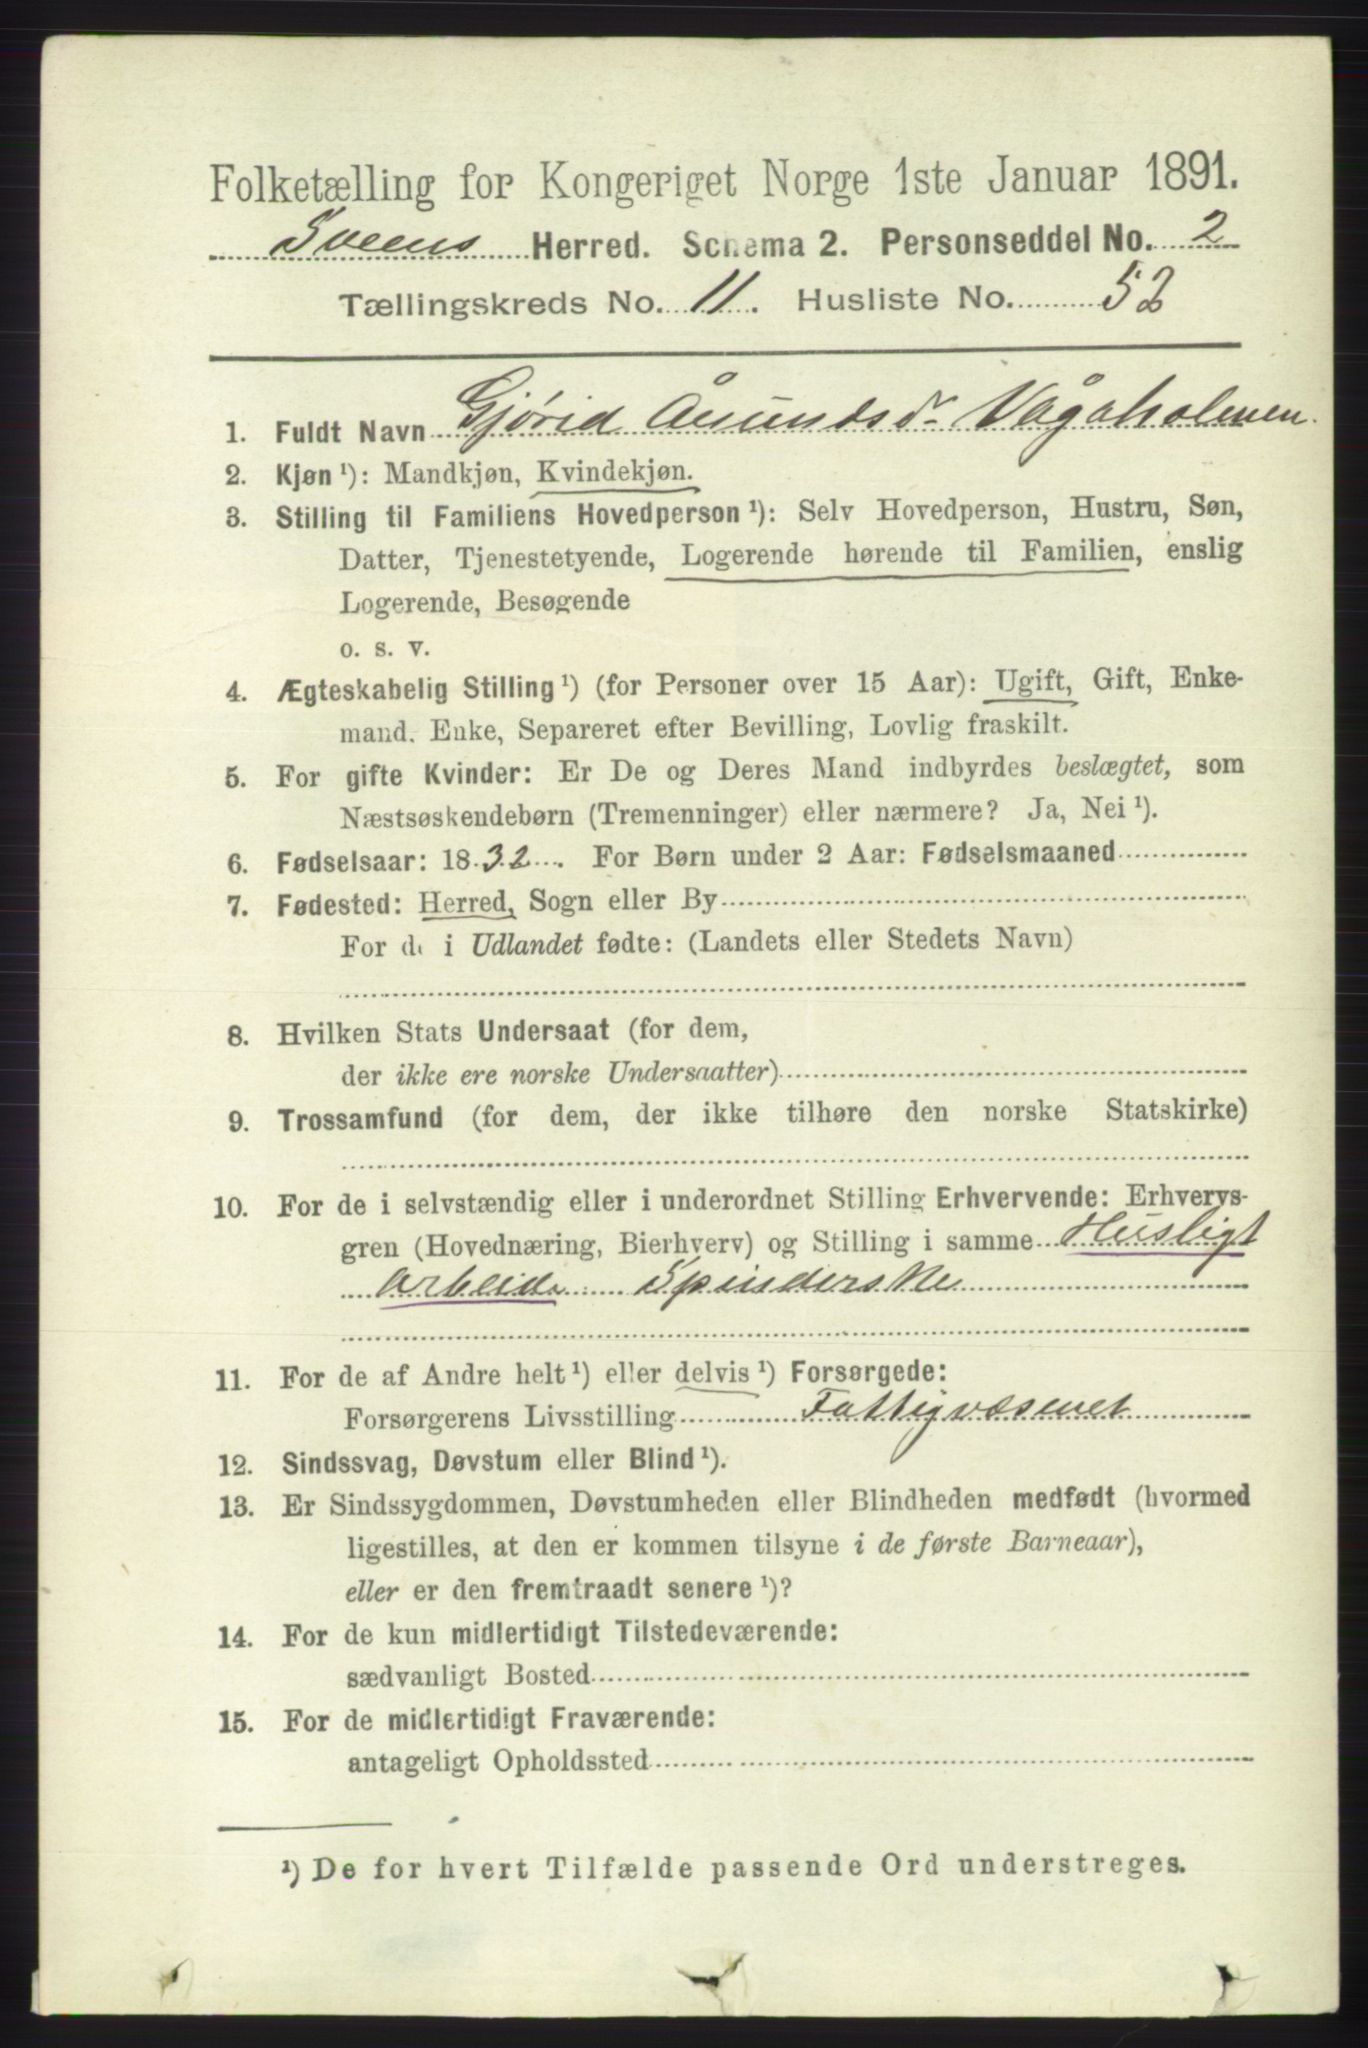 Folketælling for Kongeriget Norge 1ste Januar 1891.
Sveens Herred. Schema 2. Personseddel No. 2
Tællingskreds No. 11. Husliste No. 52
1. Fuldt Navn Gjørid Åmundsdr Vågaholmen.
2. Kjøn ¹): Mandkjøn, Kvindekjøn.
3. Stilling til Familiens Hovedperson ¹): Selv Hovedperson, Hustru, Søn,
Datter, Tjenestetyende, Logerende hørende til Familien, enslig
Logerende, Besøgende
o. s. v.
4. Ægteskabelig Stilling ¹) (for Personer over 15 Aar): Ugift, Gift, Enke-
mand, Enke, Separeret efter Bevilling, Lovlig fraskilt.
5. For gifte Kvinder: Er De og Deres Mand indbyrdes beslægtet, som
Næstsøskendebørn (Tremenninger) eller nærmere? Ja, Nei ¹).
6. Fødselsaar: 1832. For Børn under 2 Aar: Fødselsmaaned
7. Fødested: Herred, Sogn eller By
For de i Udlandet fødte: (Landets eller Stedets Navn)
8. Hvilken Stats Undersaat (for dem,
der ikke ere norske Undersaatter)
9. Trossamfund (for dem, der ikke tilhøre den norske Statskirke)
10. For de i selvstændig eller i underordnet Stilling Erhvervende: Erhvervs-
gren (Hovednæring, Bierhverv) og Stilling i samme Husligt
arbeide Spinderske
11. For de af Andre helt ¹) eller delvis ¹) Forsørgede:
Forsørgerens Livsstilling Fattigvæsenet
12. Sindssvag, Døvstum eller Blind ¹).
13. Er Sindssygdommen, Døvstumheden eller Blindheden medfødt (hvormed
ligestilles, at den er kommen tilsyne i de første Barneaar),
eller er den fremtraadt senere ¹)?
14. For de kun midlertidigt Tilstedeværende:
sædvanligt Bosted
15. For de midlertidigt Fraværende:
antageligt Opholdssted
¹) De for hvert Tilfælde passende Ord understreges.